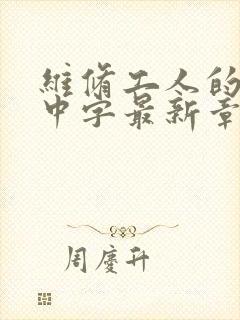 維脩工人的
中字最新章
周慶升